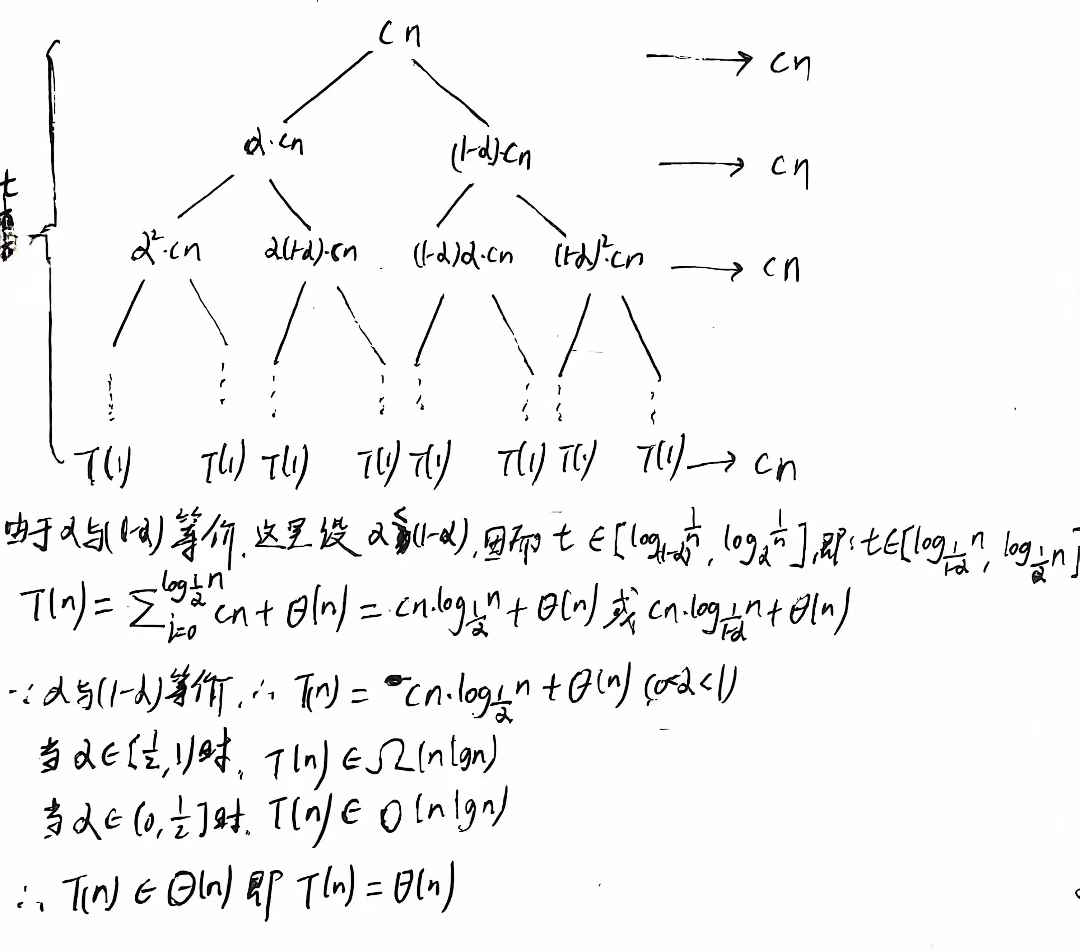 cn → cn
α·cn (1-α)·cn → cn
t
α²·cn α(1-α)·cn (1-α)α·cn (1-α)²·cn → cn
T(1) T(1) T(1) T(1) T(1) T(1) T(1) T(1) → cn
由于α与(1-α)等价,这里设α≤(1-α),因而 t∈[log_(1-α) 1/n, log_α 1/n],即:t∈[log_{1/(1-α)} n, log_{1/α} n]
T(n) = ∑_{i=0}^{log_{1/α} n} cn + θ(n) = cn·log_{1/α} n + θ(n) 或 cn·log_{1/(1-α)} n + θ(n)
∵α与(1-α)等价,∴ T(n) = cn·log_{1/α} n + θ(n) (0<α<1)
当α∈[1/2,1)时, T(n)∈Ω(nlgn)
当α∈(0,1/2]时, T(n)∈O(nlgn)
∴ T(n)∈Θ(n) 即 T(n)=θ(n)